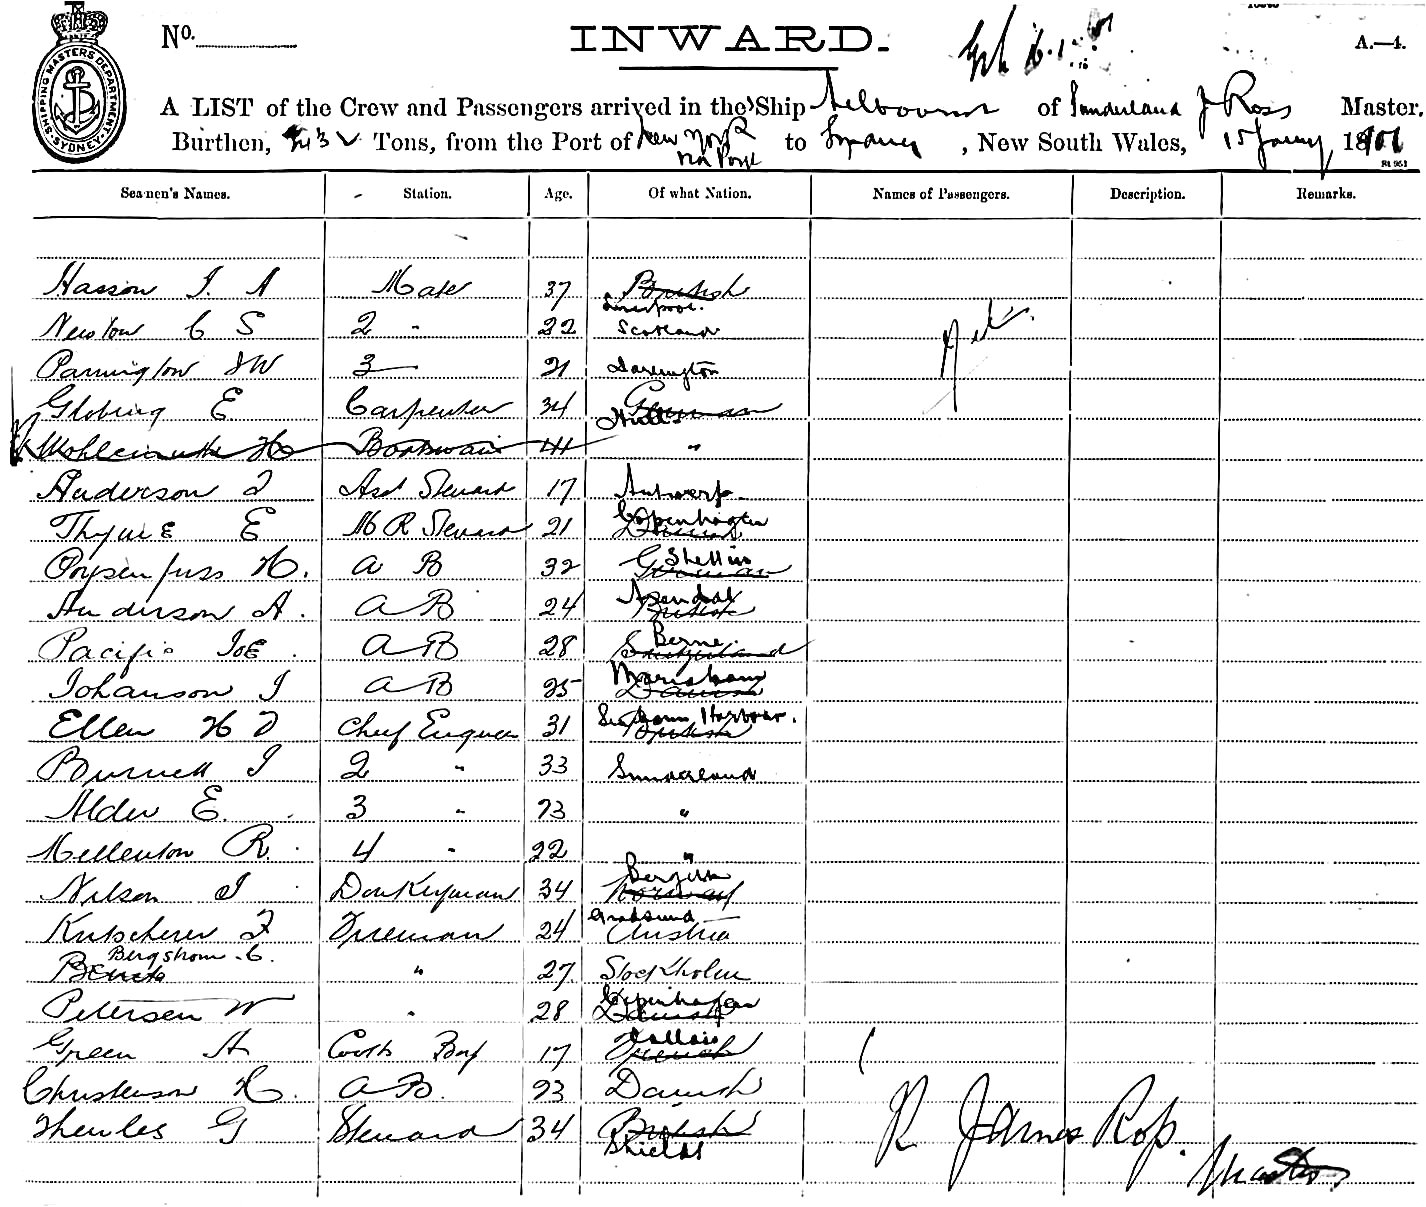 SHIPPING MASTERS DEPARTMENT SYDNEY
No.
INWARD.
A.—4.
A LIST of the Crew and Passengers arrived in the Ship Melbourne of Sunderland J Ross Master.
Burthen, Tons, from the Port of New York to Sydney, New South Wales, 15 Jany 1901
Seamen's Names. Station. Age. Of what Nation. Names of Passengers. Description. Remarks.
Hasson J. A Mate 37 British
Liverpool.
Newton C S 2 " 22 Scotland
Parrington J W 3 21 Darlington
Globing E Carpenter 34 German
Boatswain 44 "
Anderson J Asst Steward 17 Antwerp
Thyme E M R Steward 21 Copenhagen
Poysenfuss H. A B 32 German Stettin
Anderson A. A B 24 Arendal
Pacific JoE A B 28 Berne. Switzerland
Johanson J A B 25
Ellen H D Chief Engineer 31 Seaham Harbour. British
Burnell J 2 " 33 Sunderland
Alder E. 3 " 23 "
Mellenton R. 4 " 22 "
Nilson J Donkeyman 34 Norway
Kutscherer F Fireman 24 Austria
Bergstrom C. " 27 Stockholm
Petersen W " 28 Copenhagen Danish
Green A Cooks Boy 17 French
Christenson H. A B. 23 Danish
G Steward 34 British
Shields
James Ross.
Master